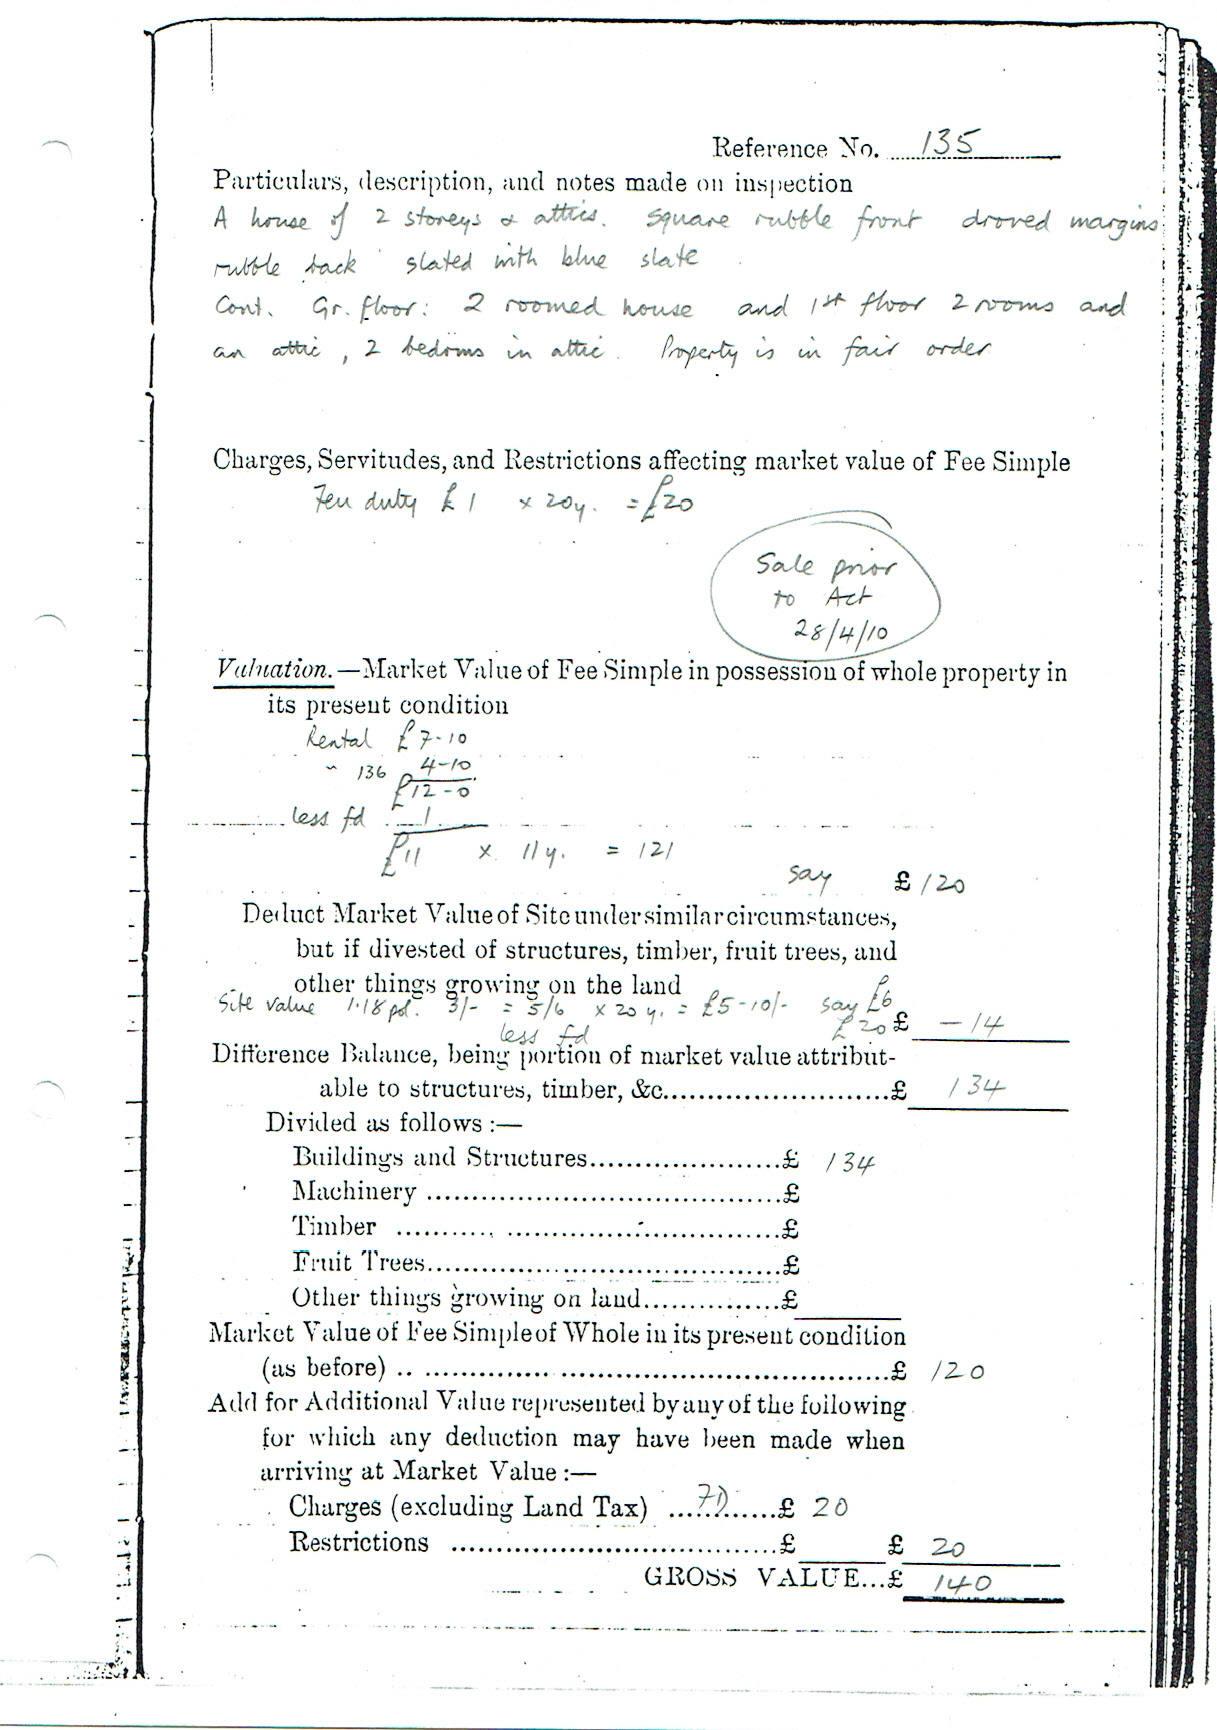 Reference No. 135
Particulars, description, and notes made on inspection
A house of 2 storeys & attics. Square rubble front droved margins
rubble back slated with blue slate
Cont. Gr. floor: 2 roomed house and 1st floor 2 rooms and
an attic, 2 bedrms in attic. Property is in fair order
Charges, Servitudes, and Restrictions affecting market value of Fee Simple
Feu duty £1 × 20y. = £20
Sale prior
to Act
28/4/10
Valuation.—Market Value of Fee Simple in possession of whole property in
its present condition
Rental £7-10
" 136 4-10
£12-0
less fd 1
£11 × 11y. = 121
say £120
Deduct Market Value of Site under similar circumstances,
but if divested of structures, timber, fruit trees, and
other things growing on the land
Site value 1·18 pol. 3/- = 5/6 × 20 y. = £5-10/- say £6
less fd £20 £ -14
Difference Balance, being portion of market value attribut-
able to structures, timber, &c. £ 134
Divided as follows :—
Buildings and Structures £ 134
Machinery £
Timber £
Fruit Trees £
Other things growing on land £
Market Value of Fee Simple of Whole in its present condition
(as before) £ 120
Add for Additional Value represented by any of the following
for which any deduction may have been made when
arriving at Market Value :—
Charges (excluding Land Tax) FD £ 20
Restrictions £ £ 20
GROSS VALUE...£ 140